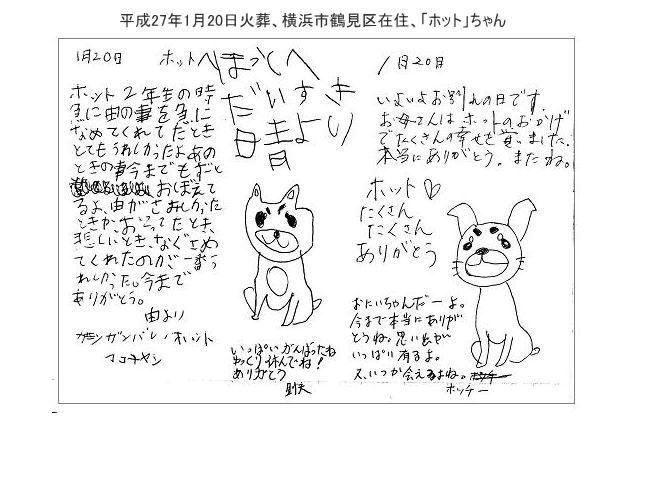 平成27年1月20日火葬、横浜市鶴見区在住、「ホット」ちゃん
1月20日
ホット
ホット2年生の時
急に由の事を急に
なめてくれてたとき
とてもうれしかったよあの
ときの事今までもずっと
おぼえて
るよ、由がさみしかった
ときか、おこってたとき、
悲しいとき、なぐさめ
てくれたのが、一番う
れしかった。今まで
ありがとう。
由より
ガンガンバレ ホット
マコチャン
ほっとへ
だいすき
日青より
いっぱいがんばったね
ゆっくり休んでね!
ありがとう
則夫
1月20日
いよいよお別れの日です。
お母さんはホットのおかげ
でたくさんの幸せを貰いました。
本当にありがとう。またね。
ホット♡
たくさん
たくさん
ありがとう
おにいちゃんだーよ。
今まで本当にありが
とうね。思い出が
いっぱい有るよ。
又、いつか会えるよね。
ホッチー